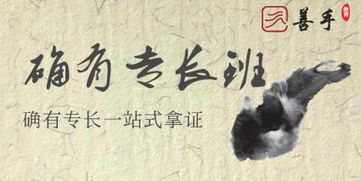 善手
确有专长班
确有专长一站式拿证